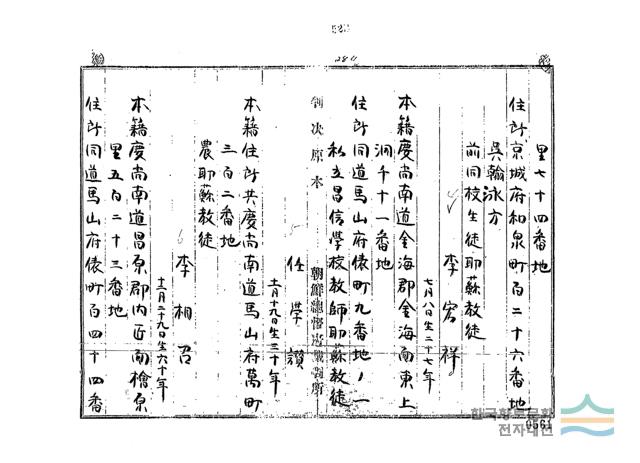 里七十四番地
住所京城府和泉町百二十六番地
吳翰泳方
前同校生徒耶蘇教徒
李宏祥
七月八日生二十七年
本籍慶尚南道金海郡金海面東上
洞千十一番地
住所同道馬山府俵町九番地ノ一
私立昌信學校教師耶蘇教徒
判決原本
朝鮮總督府裁判所
任學讚
十一月十九日生三十年
本籍住所共慶尚南道馬山府萬町
三百二番地
農耶蘇教徒
6
李相召
十二月二十九日生六十年
本籍慶尚南道昌原郡內西面檜原
里五百二十三番地
住所同道馬山府俵町百四十四番
한국향토문화
전자대전
0561